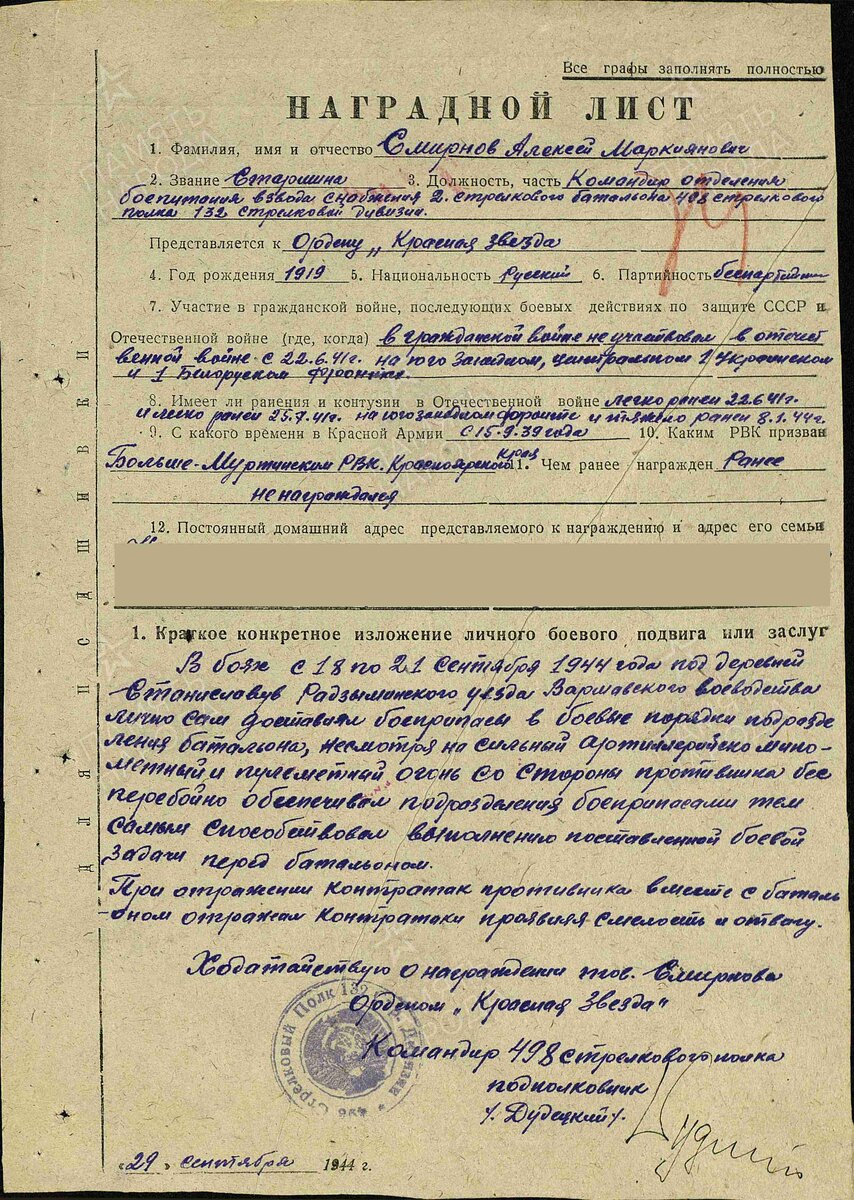 Все графы заполнять полностью
НАГРАДНОЙ ЛИСТ
1. Фамилия, имя и отчество Смирнов Алексей Маркиянович
2. Звание Старшина 3. Должность, часть Командир отделения
боепитания взвода снабжения 2. стрелкового батальона 498 стрелкового
полка 132 стрелковой дивизии.
Представляется к Ордену „Красная звезда
4. Год рождения 1919 5. Национальность Русский 6. Партийность беспартийный
7. Участие в гражданской войне, последующих боевых действиях по защите СССР и
Отечественной войне (где, когда) в гражданской войне не участвовал в отечест
венной войне с 22.6.41г. на Юго Западном, центральном 1 Украинском
и 1 Белоруском фронтах.
8. Имеет ли ранения и контузии в Отечественной войне легко ранен 22.6.41г.
и легко ранен 25.7.41г. на югозападном фронте и тяжело ранен 8.1.44г.
9. С какого времени в Красной Армии с 15.9.39 года 10. Каким РВК призван
Больше-Муртинским РВК. Красноярского края 11. Чем ранее награжден Ранее
не награждался
12. Постоянный домашний адрес представляемого к награждению и адрес его семьи
1. Краткое конкретное изложение личного боевого подвига или заслуг
В боях с 18 по 21 сентября 1944 года под деревней
Станиславув Радзыминского уезда Варшавского воеводства
лично сам доставлял боеприпасы в боевые порядки подразде
ления батальона, несмотря на сильный артиллерийско мино-
метный и пулеметный огонь со стороны противника бес
перебойно обеспечивал подразделения боеприпасами тем
самым способствовал выполнению поставленной боевой
задачи перед батальоном.
При отражении контратак противника вместе с баталь
-оном отражал контратаки проявляя смелость и отвагу.
Ходатайствую о награждении тов. Смирнова
Орденом „Красная Звезда"
Командир 498 стрелкового полка
подполковник
/. Дудецкий /.
«29» сентября 1944 г.
ДЛЯ ПОДШИВКИ
Стрелковый Полк 132 Дивизии